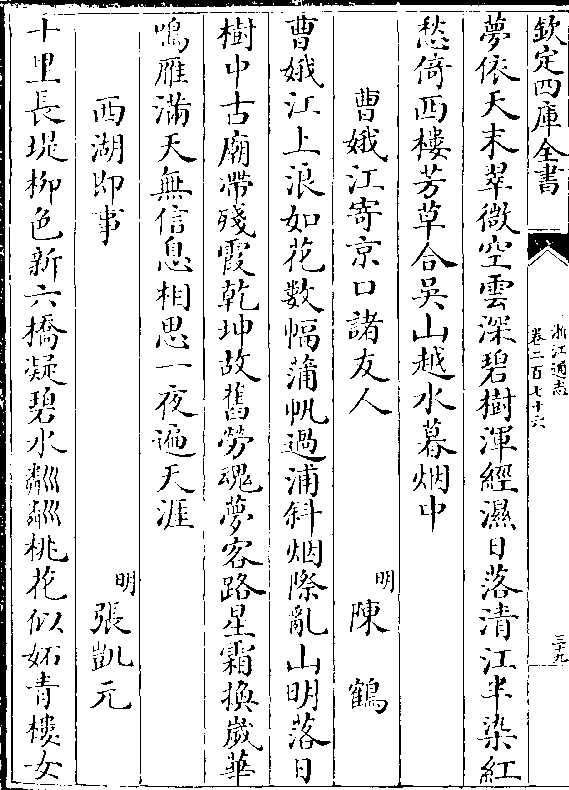 欽定四庫全書
浙江通志
卷二百七十六
三十九
夢依天末翠微空雲深碧樹渾經濕日落清江半染紅
愁倚西樓芳草合吳山越水暮烟中
曹娥江寄京口諸友人
明
陳鶴
曹娥江上浪如花數幅蒲帆過浦斜烟際亂山明落日
樹中古廟帶殘霞乾坤故舊勞魂夢客路星霜換歲華
鳴雁滿天無信息相思一夜遍天涯
西湖即事
明
張凱元
十里長堤柳色新六橋凝碧水粼粼桃花似妬青樓女